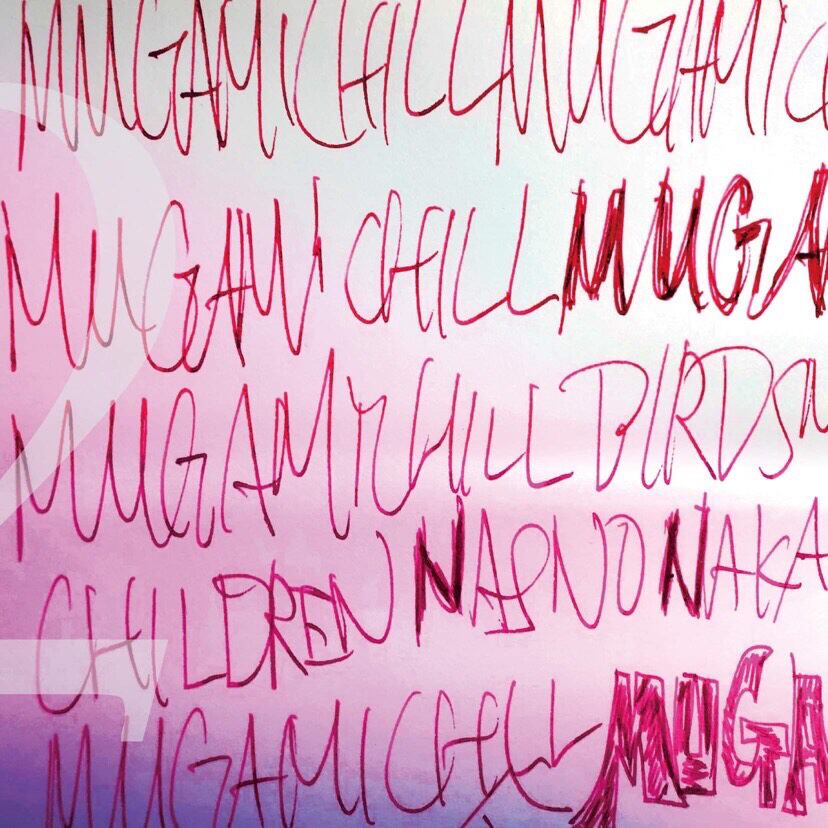 MUGAMICHILLMUGAMIC
MUGAMI CHILL MUGA
MUGAMYCHILL BIRDS
CHILDREN NAKA
MUGAMICHILL MUGA
2